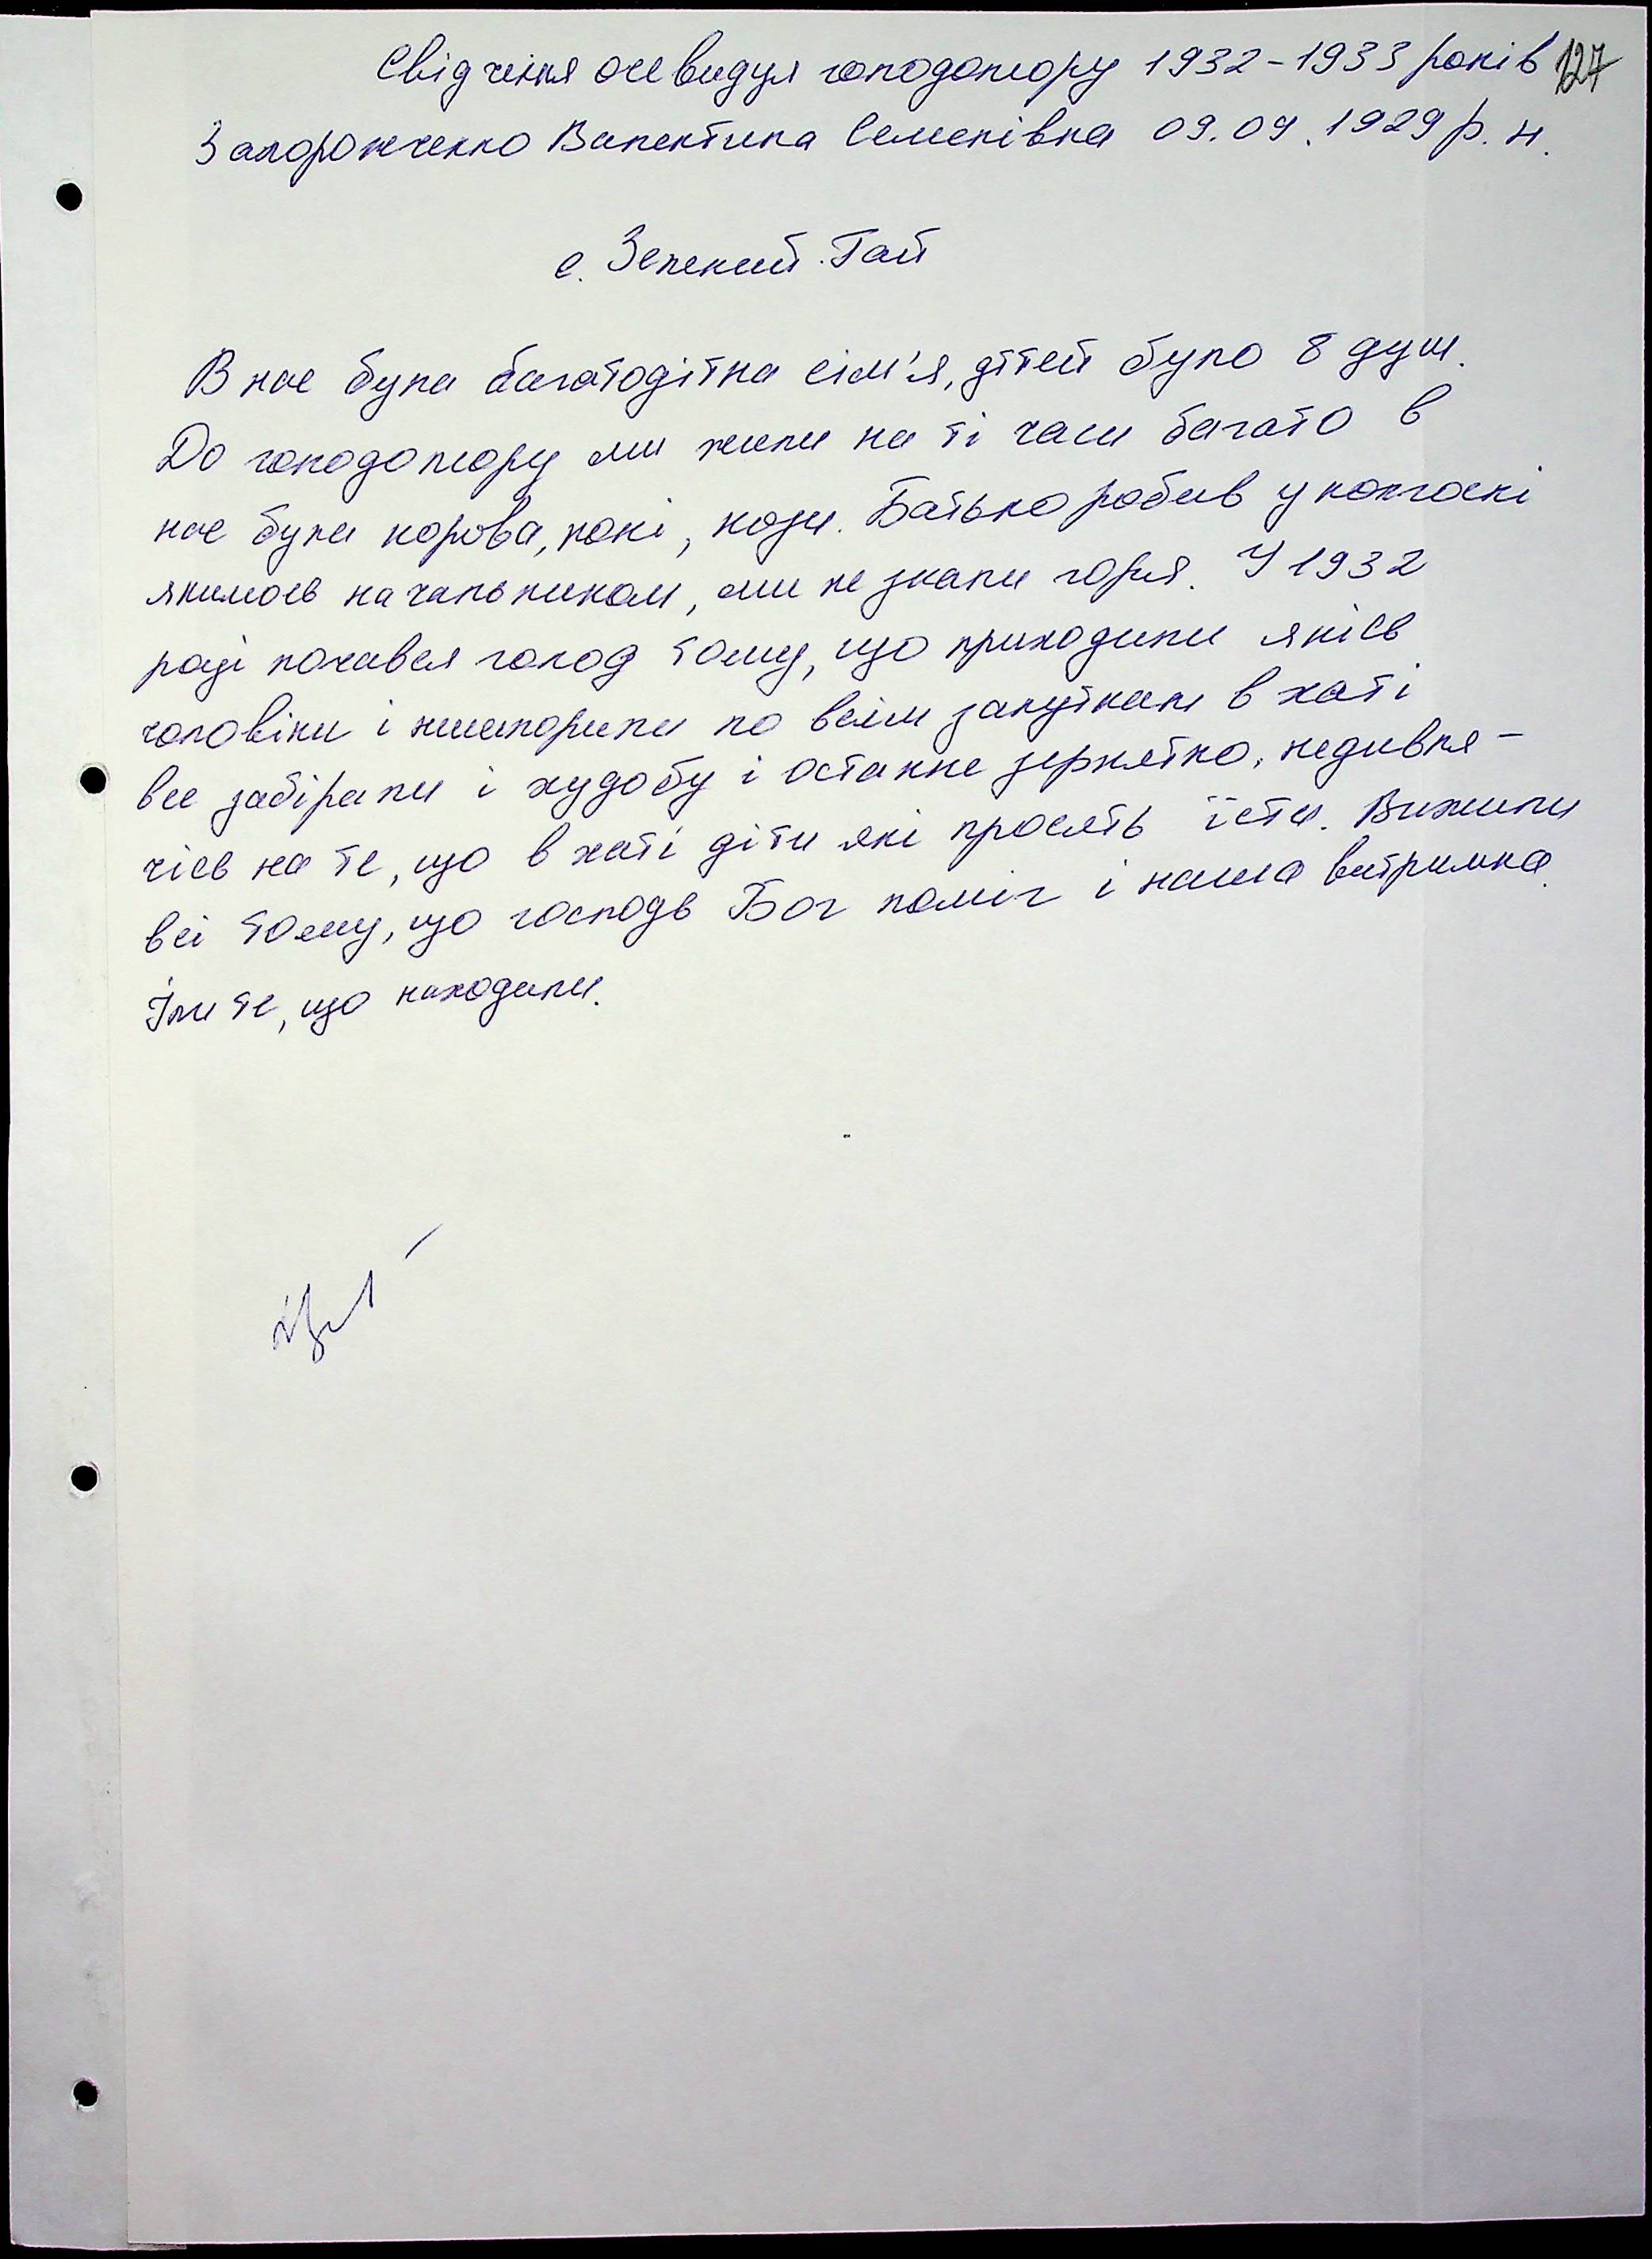 Свідчення очевидця голодомору 1932-1933 років 127
Запорожченко Валентина Семенівна 09.09.1929 р. н.
с. Зелений Гай
В нас була багатодітна сім'я, дітей було 8 душ.
До голодомору ми жили на ті часи багато в
нас були корова, коні, кози. Батько робив у колгоспі
якимось начальником, ми не знали горя. У 1932
році почався голод тому, що приходили якісь
чоловіки і нишпорили по всім закуткам в хаті
все забірали і худобу і останнє зернятко, недивля-
чісь на те, що в хаті діти які просять їсти. Вижили
всі тому, що господь Бог поміг і наша витримка.
Їли те, що находили.